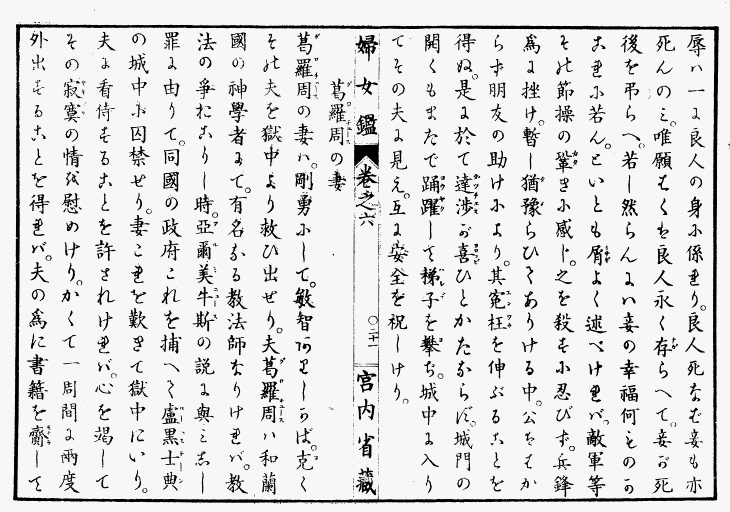 辱ハ一に良人の身に係れり。良人死なば妾も亦
死んのミ。唯願はくは良人永く存らへて。妾が死
後を弔らへ。若し然らんにハ妾の幸福何ものか
これに若ん。といとも屑よく述べければ。敵軍等
その節操の鞏きに感じ。之を殺すに忍びず。兵鋒
爲に挫け。暫し猶豫らひてありける中。公もはか
らず朋友の助けにより。其寃枉を伸ぶることを
得ぬ。是に於て達渉が喜ひとかたならず。城門の
開くもまたで踊躍して梯子を攀ぢ。城中に入り
てその夫に見え。互に安全を祝しけり。
婦女鑑 卷之六 〇二十一 宮内省藏
葛羅周の妻
葛羅周の妻ハ。剛勇にして。敏智ありしかば。克く
その夫を獄中より救ひ出せり。夫葛羅周ハ和蘭
國の神學者にて。有名なる教法師なりければ。教
法の爭おこりし時。亞爾美牛斯の説に與ミせし
罪に由りて。同國の政府これを捕へて盧黒士典
の城中に囚禁せり。妻これを歎きて獄中にいり。
夫に看侍することを許されければ。心を竭して
その寂寞の情を慰めけり。かくて一周間に兩度
外出することを得れば。夫の爲に書籍を齎して